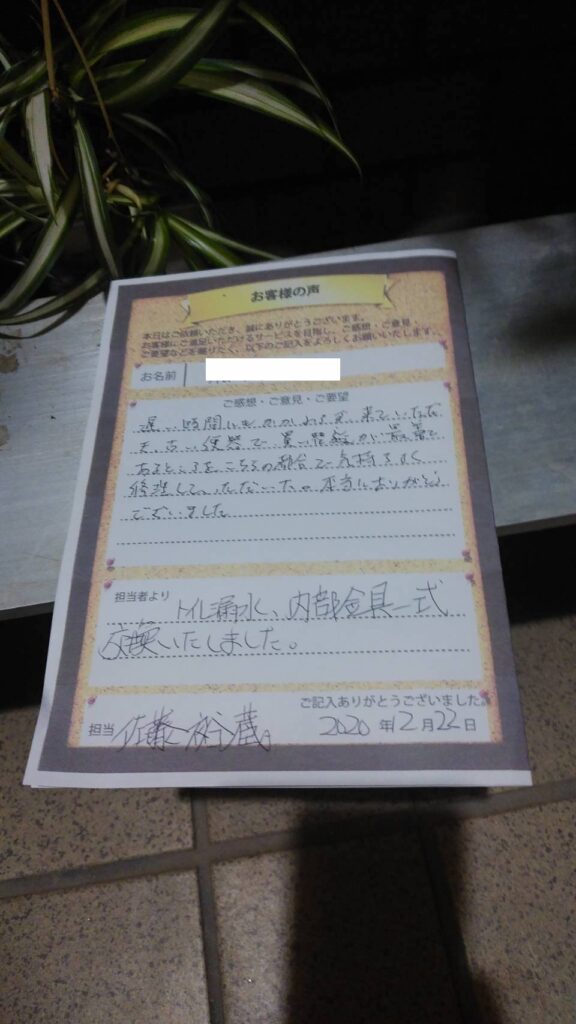 お客様の声
本日はご依頼いただき、誠にありがとうございます。
お客様にご満足いただけるサービスを目指し、ご感想・ご意見、
ご要望などを賜りたく、以下のご記入をよろしくお願いいたします。
お名前
ご感想・ご意見・ご要望
遅い時間にもかかわらず、来ていただ
き、古い便器で
あるところをこちらの都合で気持ちよく
修理して、いただいた。本当にありがとう
ございました
担当者より
トイレ漏水、内部金具一式
交換いたしました。
ご記入ありがとうございました。
担当 佐藤 裕蔵 2020年12月22日